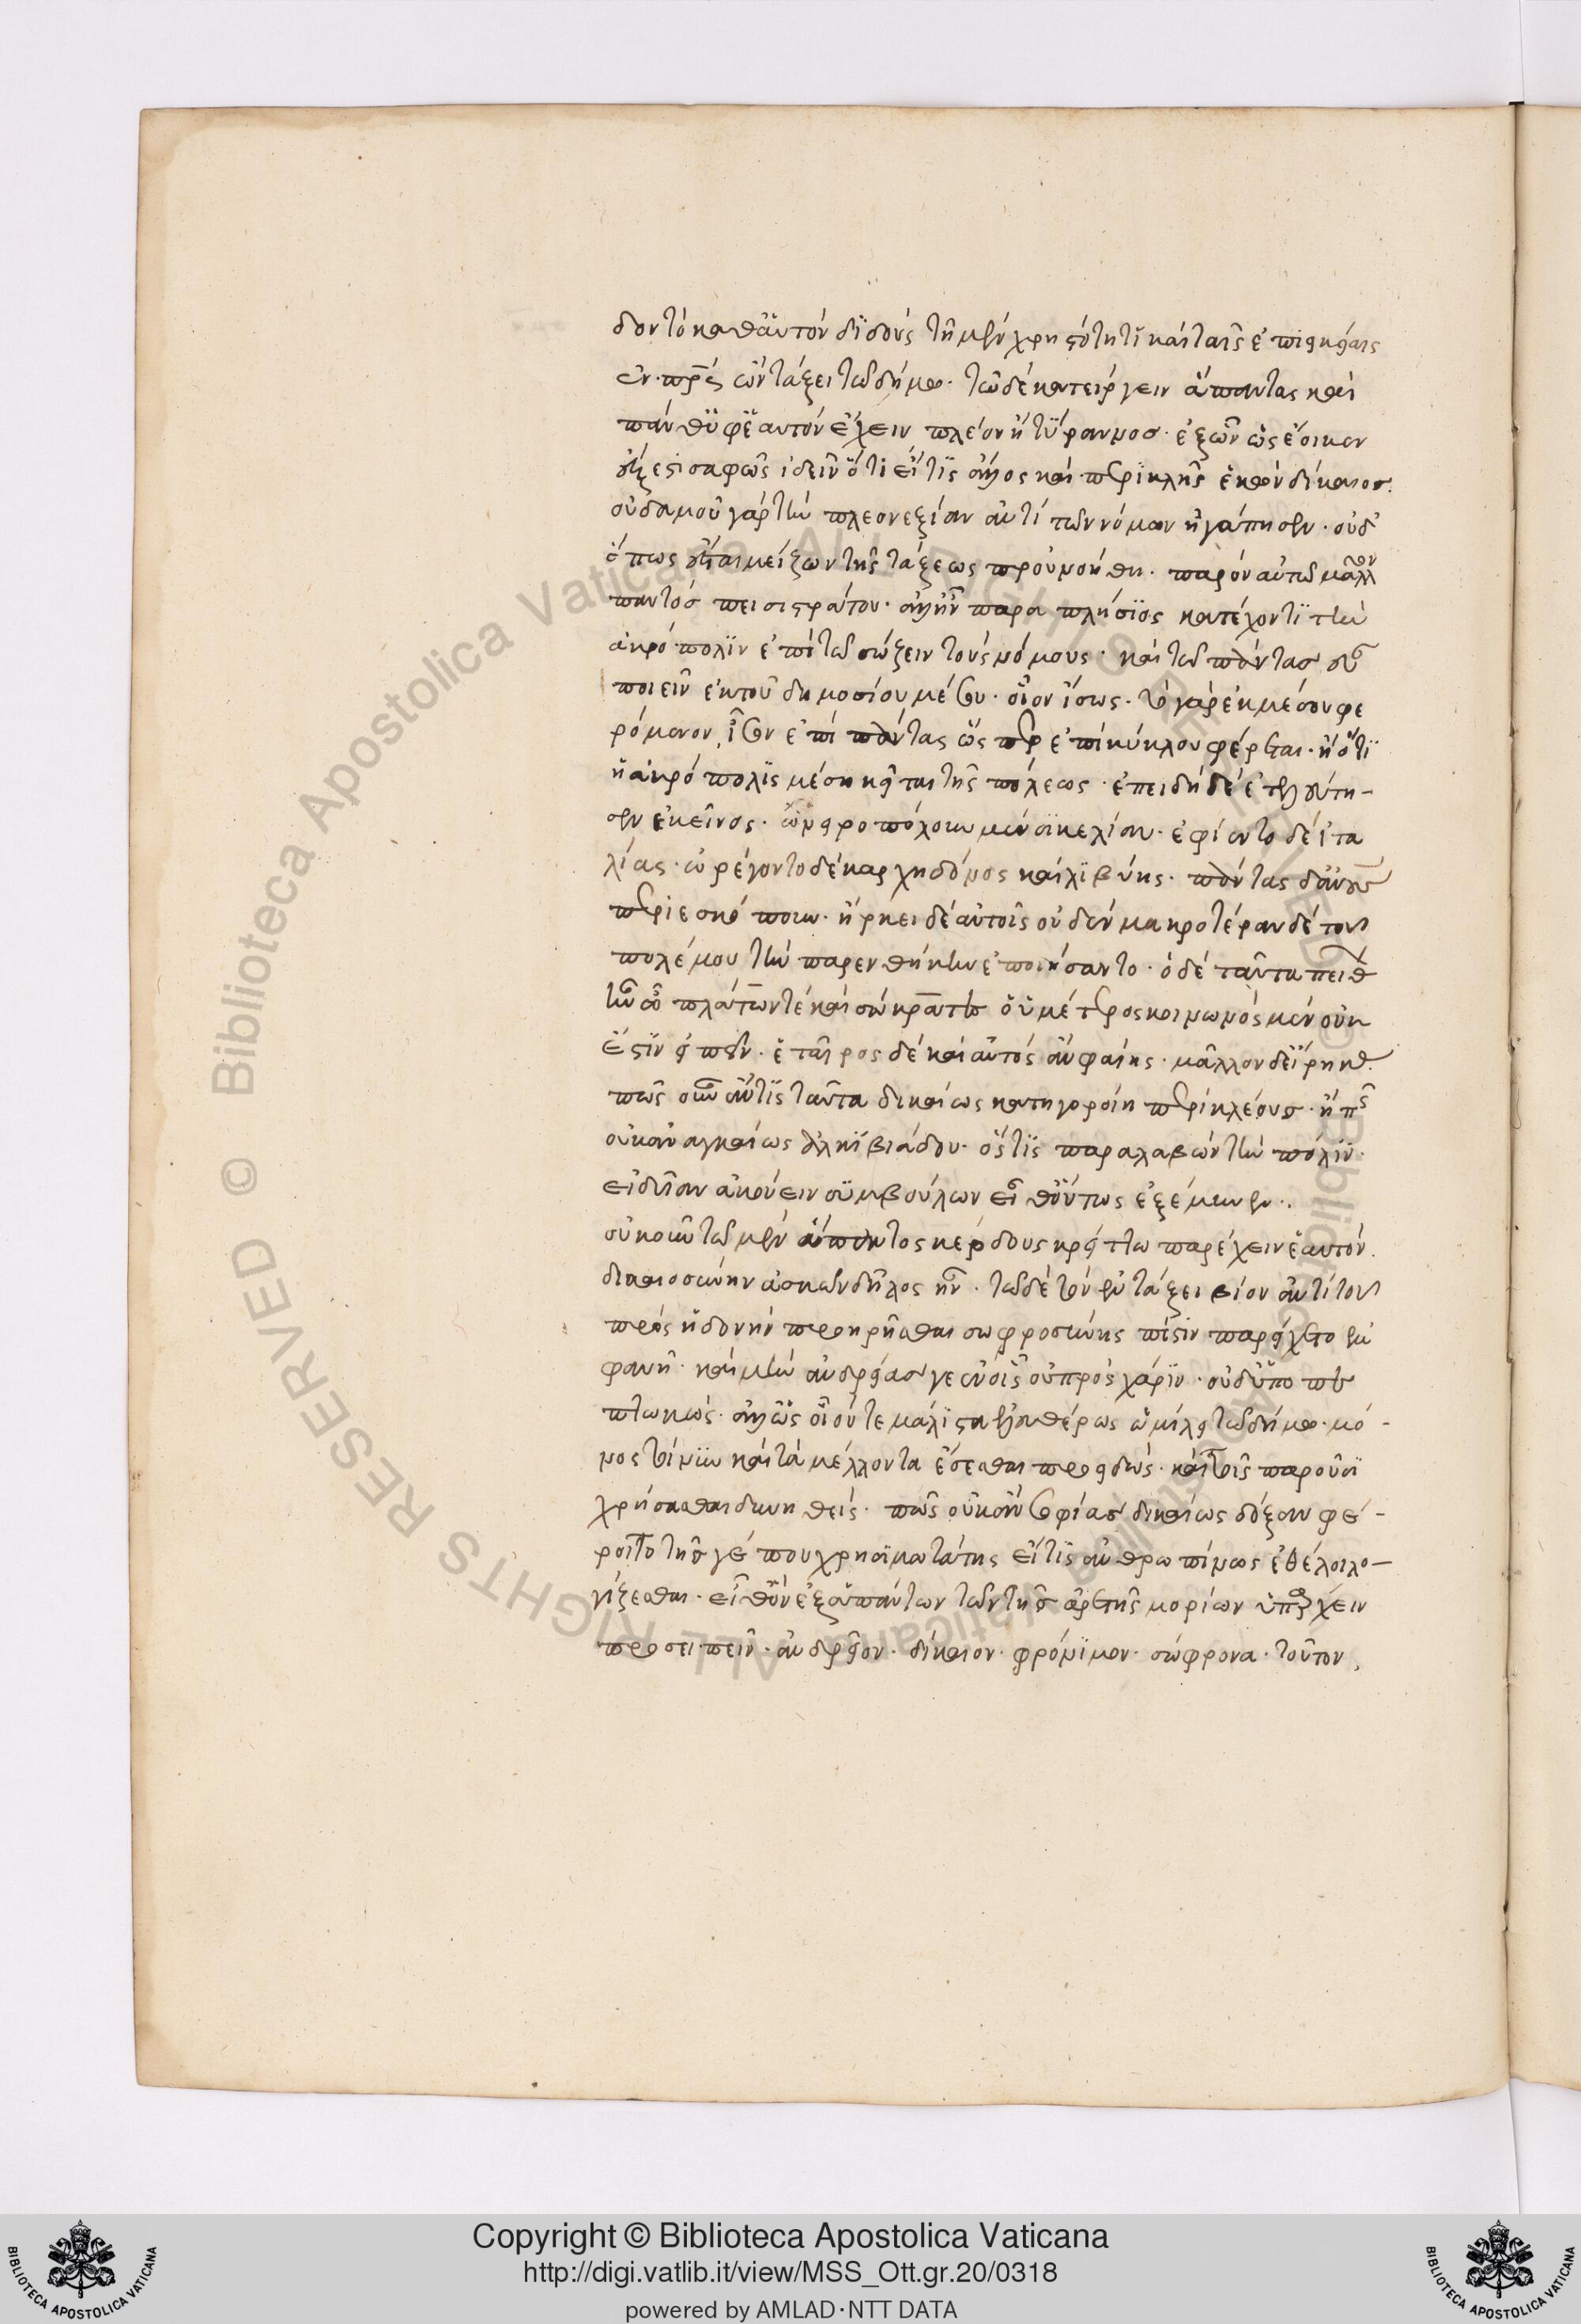 δον τὸ καθ' αὑτὸν διδοὺς τῆ μὲν χρηστότητι καὶ ταῖς ἐπιεικείαις
ἐν τάξει τῶ δήμω· τῶ δὲ κατείργειν ἅπαντας καὶ
πάνθ' ὑφ' ἑαυτὸν ἔχειν πλέον ἢ τύραννος· ἐξ ὧν ὡς ἔοικεν
ἔξεστι σαφῶς ἰδεῖν ὅτι εἴ τις ἄλλος καὶ περικλῆς ἑκὼν δίκαιος·
οὐδαμοῦ γὰρ τὴν πλεονεξίαν ἀντὶ τῶν νόμων ἠγάπησεν· οὐδ'
ὅπως ἔσται μείζων τῆς τάξεως προυνοήθη· παρὸν αὐτῶ μᾶλλον
παντὸς πεισιστράτου· ἀλλ' ἦν παραπλήσιος κατέχοντι τὴν
ἀκρόπολιν ἐπὶ τῶ σώζειν τοὺς νόμους· καὶ τῶ πάντας εὖ
ποιεῖν ἐκ τοῦ δημοσίου μέσου· οἷον ἴσως· τὸ γὰρ ἐκ μέσου φε
ρόμενον, ἴσον ἐπὶ πάντας ὥσπερ ἐπὶ κύκλου φέρεται· ἢ ὅτι
ἡ ἀκρόπολις μέση κεῖται τῆς πόλεως· ἐπειδὴ δὲ ἐτελεύτη-
σεν ἐκεῖνος· ὠνειροπόλουν μὲν σικελίαν· ἐφίεντο δὲ ἰτα
λίας· ὠρέγοντο δὲ καρχηδόνος καὶ λιβύης· πάντας δ' ἀνθρώπους
περιεσκόπουν· ἤρκει δὲ αὐτοῖς οὐδὲν μακροτέραν δὲ τοῦ
πολέμου τὴν παρενθήκην ἐποιήσαντο· ὁ δὲ ταῦτα πείθων
ἦν ὦ πλάτων τε καὶ σώκρατες ὁ ὑμέτερος κοινωνὸς μὲν οὐκ
ἔστιν εἰπεῖν· ἑταῖρος δὲ καὶ αὐτὸς ἂν φαίης· μᾶλλον δ' εἴρηκας·
πῶς οὖν ἄν τις ταῦτα δικαίως κατηγοροίη περικλέους· ἢ πῶς
οὐκ ἀναγκαίως ἀλκιβιάδου· ὅστις παραλαβὼν τὴν πόλιν
εἰδυῖαν ἀκούειν συμβούλων εἶθ' οὕτως ἐξέμηνεν·
οὐκοῦν τῶ μὲν ἅπαντος κέρδους κρείττω παρέχειν ἑαυτὸν
δικαιοσύνην ἀσκῶν δῆλος ἦν· τῶ δὲ τὸν ἐν τάξει βίον ἀντὶ τοῦ
πρὸς ἡδονὴν προηρῆσθαι σωφροσύνης πίστιν παρείχετο ἐμ
φανῆ· καὶ μὴν ἀνδρείας γε ἐν οἷς οὐ πρὸς χάριν· οὐδ' ὑποπε
πτωκὼς· ἀλλ' ὡς οἷόν τε μάλιστα ἐλευθέρως ὡμίλει τῶ δήμω· μό-
νος τοίνυν καὶ τὰ μέλλοντα ἔσεσθαι προειδὼς· καὶ τοῖς παροῦσι
χρήσασθαι δυνηθεὶς· πῶς οὐκ ἂν σοφίας δικαίως δόξαν φέ-
ροιτο τῆς γέ που χρησιμωτάτης εἴ τις ἀνθρωπίνως ἐθέλοι λο-
γίζεσθαι· εἶθ' ὃν ἐξ ἁπάντων τῶν τῆς ἀρετῆς μορίων ὑπάρχειν
προσειπεῖν· ἀνδρεῖον· δίκαιον· φρόνιμον· σώφρονα· τοῦτον,
Copyright © Biblioteca Apostolica Vaticana
http://digi.vatlib.it/view/MSS_Ott.gr.20/0318
powered by AMLAD·NTT DATA
BIBLIOTECA APOSTOLICA VATICANA
BIBLIOTECA APOSTOLICA VATICANA
© Biblioteca Apostolica Vaticana ALL RIGHTS RESERVED © Biblioteca Apostolica Vaticana ALL RIGHTS RESERVED